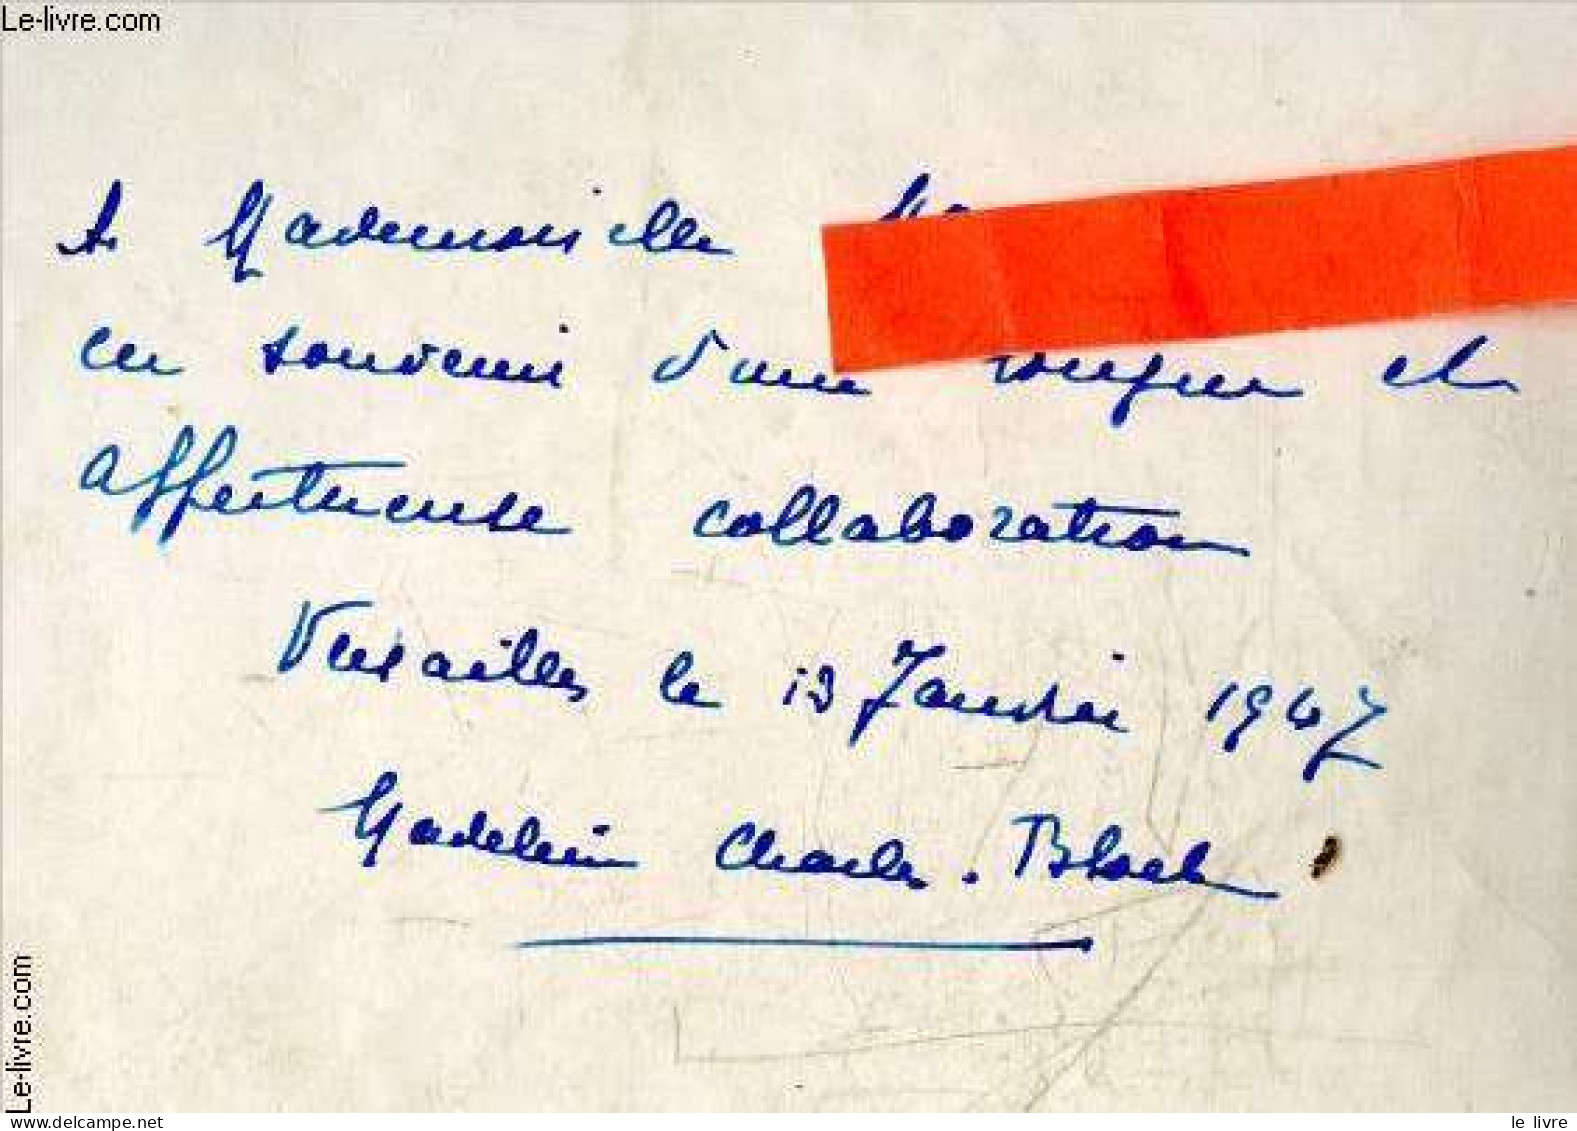 Le-livre.com
A Mademoiselle
en souvenir d'une longue et
affectueuse collaboration
Versailles le 13 Janvier 1947
Madeleine Charles. Bloch
Le-livre.com
www.delcampe.net
le livre